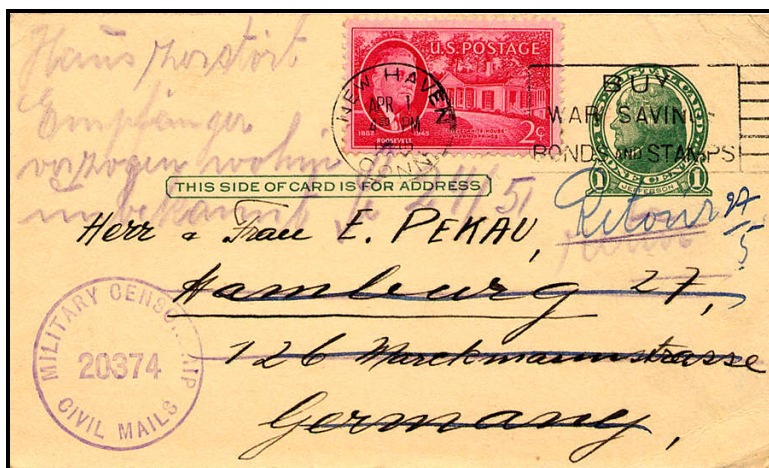 Haus zerstört
Empfänger
verzogen wohin
unbekannt 24/5
U.S. POSTAGE
1882 1945
ROOSEVELT
2¢
NEW HAVEN
APR 1
PM
CONN.
BUY
WAR SAVINGS
BONDS AND STAMPS
ONE CENT
1 JEFFERSON 1
THIS SIDE OF CARD IS FOR ADDRESS
Retour 24/5
Herr & Frau E. PEKAU,
Hamburg 27,
126 Marckmannstrasse
Germany,
MILITARY CENSORSHIP
20374
CIVIL MAILS